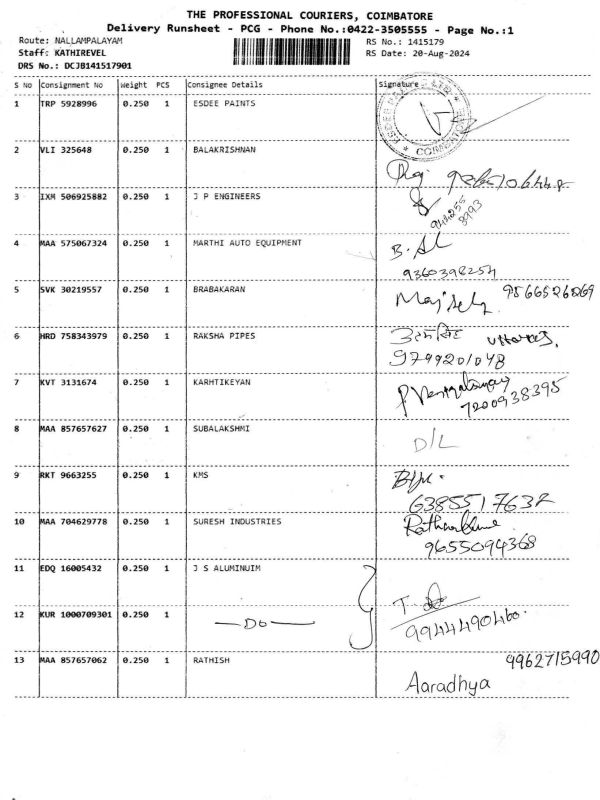 THE PROFESSIONAL COURIERS, COIMBATORE
Delivery Runsheet - PCG - Phone No.:0422-3505555 - Page No.:1
Route: NALLAMPALAYAM RS No.: 1415179
Staff: KATHIREVEL RS Date: 20-Aug-2024
DRS No.: DCJB141517901
S No Consignment No Weight PCS Consignee Details Signature
1 TRP 5928996 0.250 1 ESDEE PAINTS
2 VLI 325648 0.250 1 BALAKRISHNAN
3 IXM 506925882 0.250 1 J P ENGINEERS
944255
8993
4 MAA 575067324 0.250 1 MARTHI AUTO EQUIPMENT
9360398254
5 SVK 30219557 0.250 1 BRABAKARAN 9566526269
6 HRD 758343979 0.250 1 RAKSHA PIPES
9799201048
7 KVT 3131674 0.250 1 KARHTIKEYAN
7200938395
8 MAA 857657627 0.250 1 SUBALAKSHMI
D/L
9 RKT 9663255 0.250 1 KMS
638551763
10 MAA 704629778 0.250 1 SURESH INDUSTRIES
9655094368
11 EDQ 16005432 0.250 1 J S ALUMINUIM
12 KUR 1000709301 0.250 1 —Do—
9944490460.
13 MAA 857657062 0.250 1 RATHISH 9962715990
Aaradhya